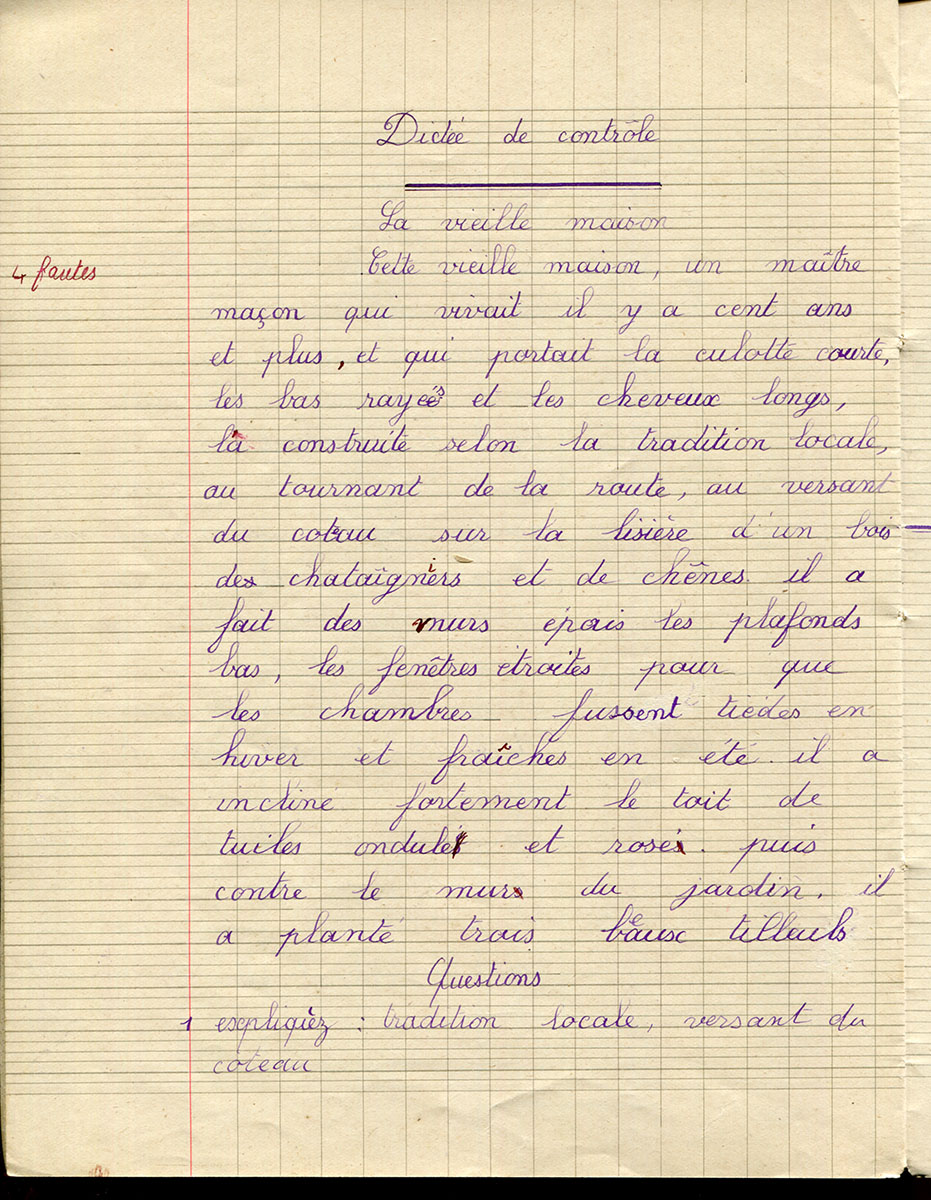 Dictée de contrôle
La vieille maison
4 fautes
Cette vieille maison, un maître
maçon qui vivait il y a cent ans
et plus, et qui portait la culotte courte,
les bas rayés et les cheveux longs,
la construite selon la tradition locale,
au tournant de la route, au versant
du coteau sur la lisière d'un bois
de chataîgniers et de chênes. il a
fait des murs épais les plafonds
bas, les fenêtres étroites pour que
les chambres fussent tiédes en
hiver et fraîches en été. il a
incliné fortement le toit de
tuiles ondulés et roses. puis
contre le mur du jardin. il
a planté trois beaux tilleuls
Questions
1 expliqièz : tradition locale, versant du
coteau